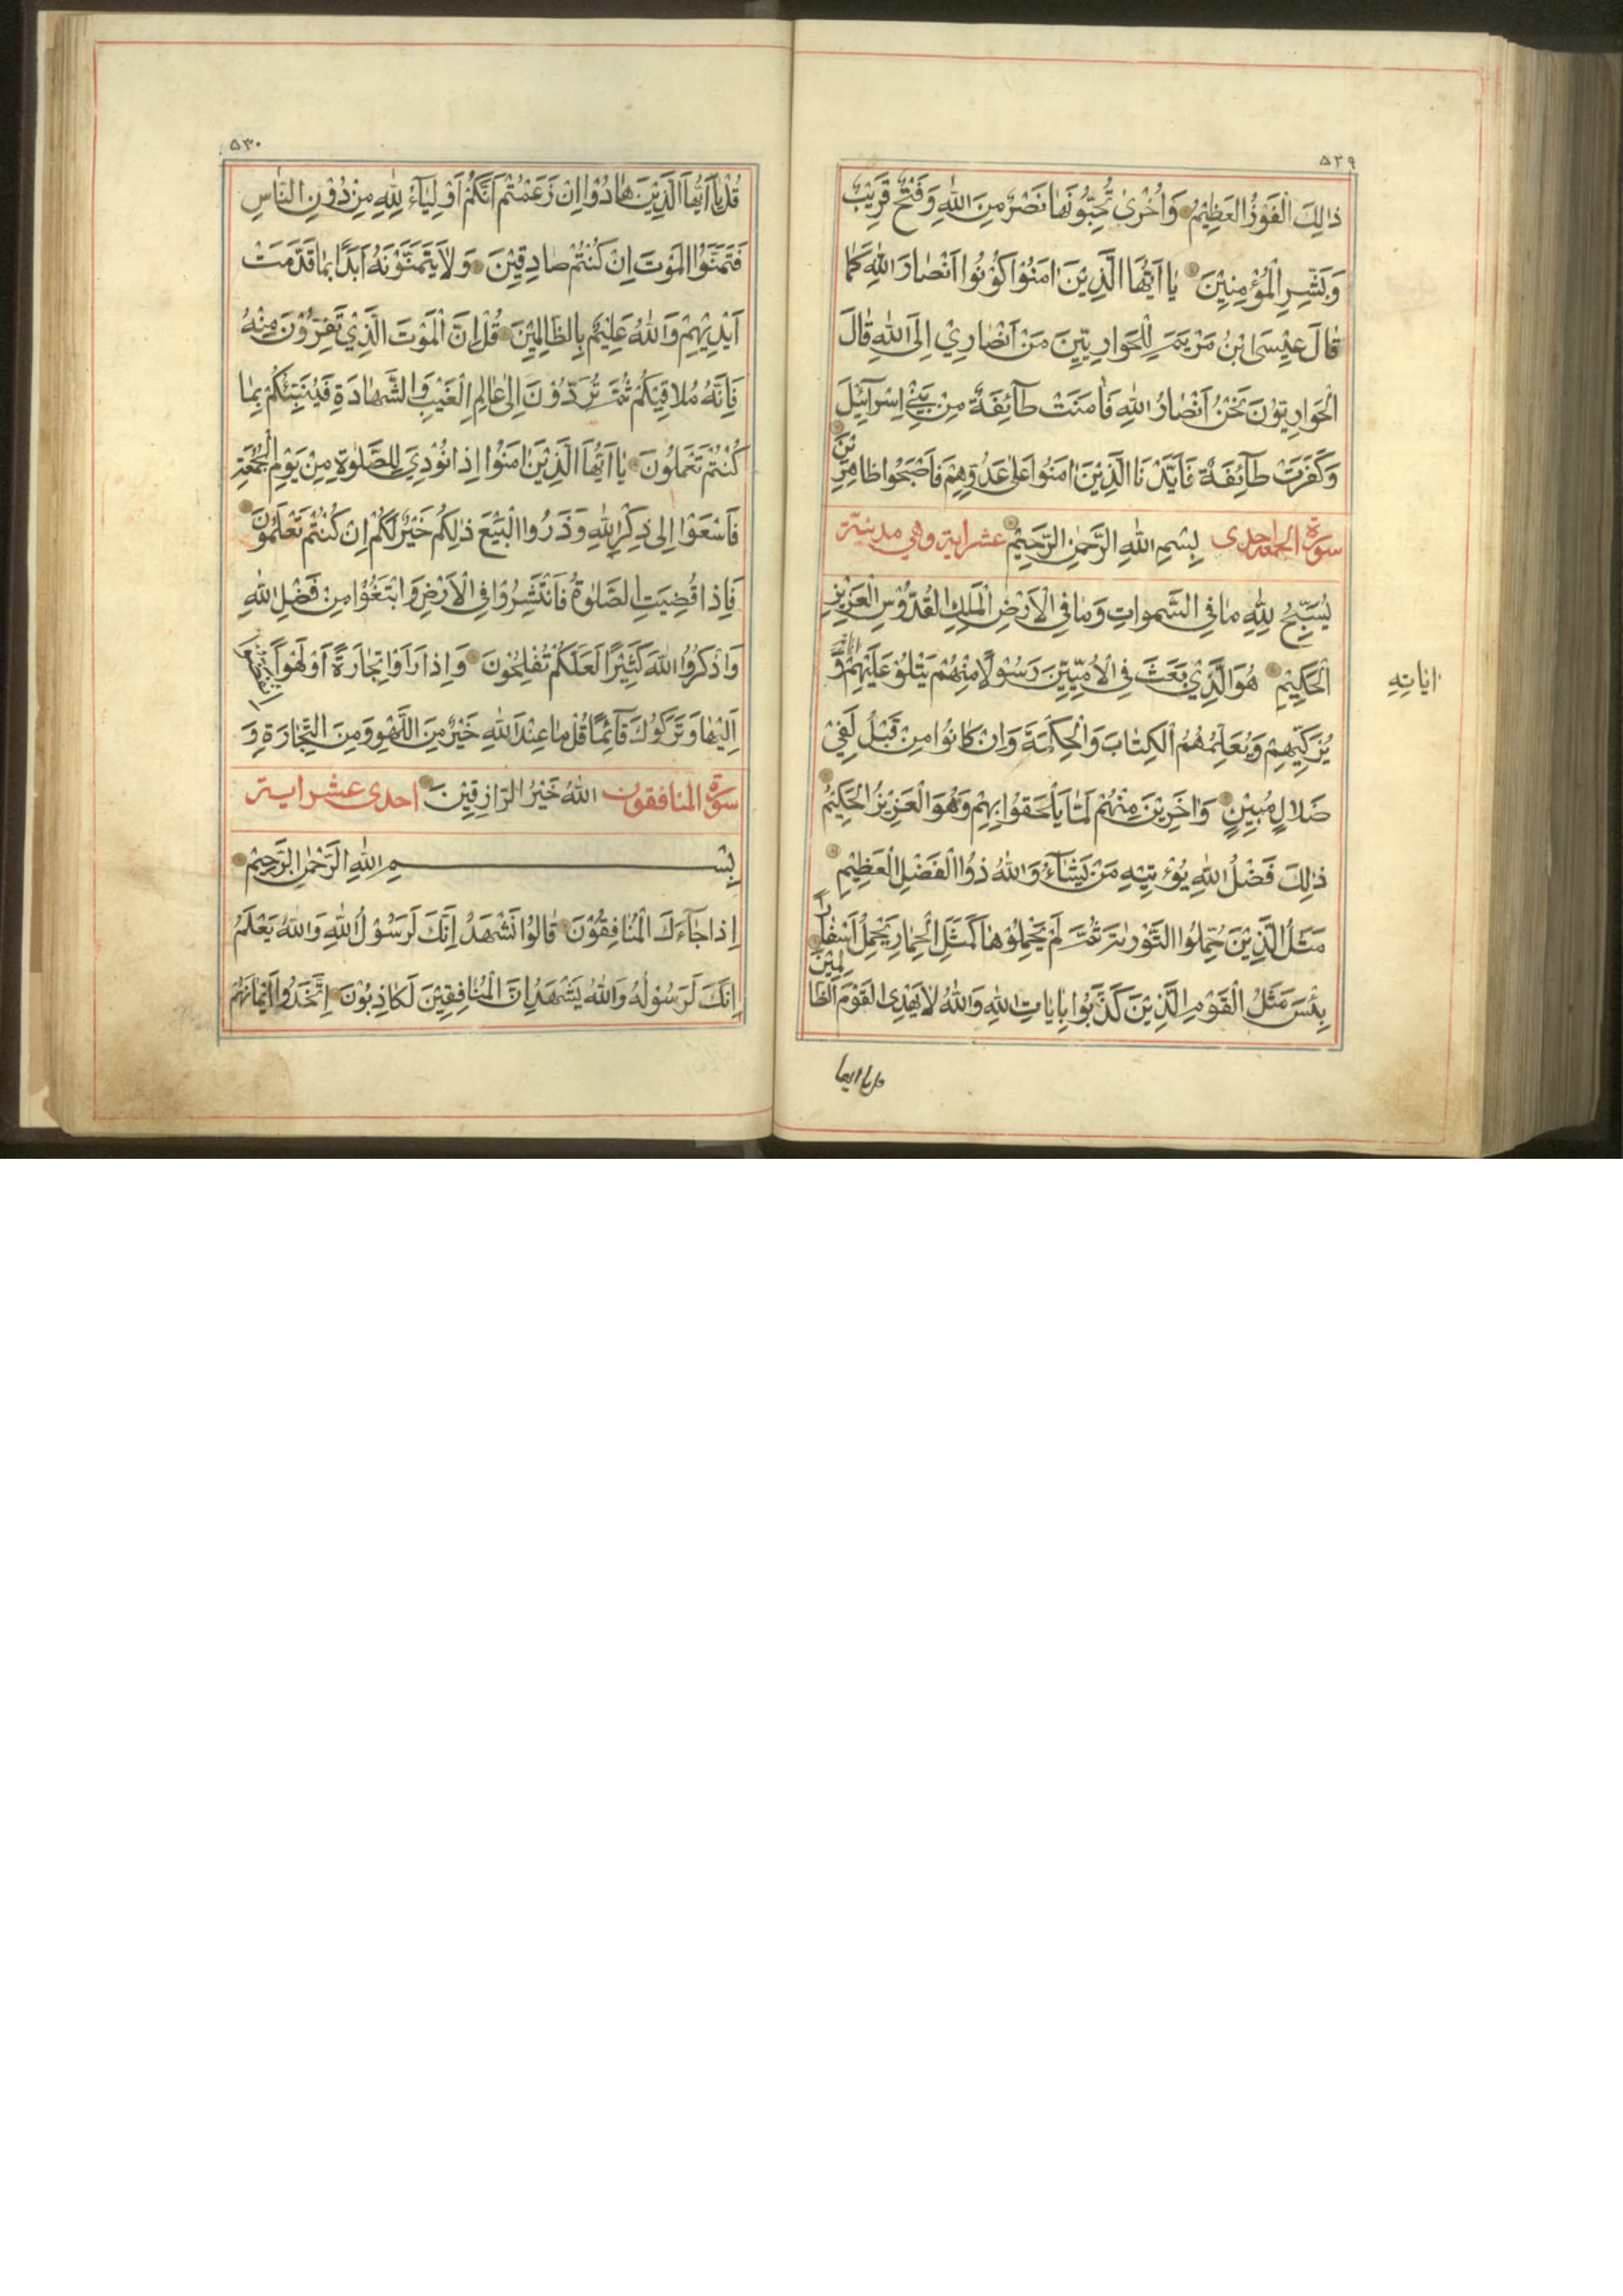 ٥٢٩
ذٰلِكَ الْفَوْزُ الْعَظِيْمُ وَاُخْرٰى تُحِبُّوْنَهٰا نَصْرٌ مِنَ اللّٰهِ وَفَتْحٌ قَرِيْبٌ
وَبَشِّرِ الْمُؤْمِنِيْنَ يٰا اَيُّهَا الَّذِيْنَ اٰمَنُوْا كُوْنُوْا اَنْصٰارَ اللّٰهِ كَمٰا
قٰالَ عِيْسَى ابْنُ مَرْيَمَ لِلْحَوٰارِيّيْنَ مَنْ اَنْصٰارِيْ اِلَى اللّٰهِ قٰالَ
الْحَوٰارِيّوُنَ نَحْنُ اَنْصٰارُ اللّٰهِ فَاٰمَنَتْ طٰآئِفَةٌ مِنْ بَنِيْ اِسْرٰآئيْلَ
وَكَفَرَتْ طٰآئِفَةٌ فَاَيَّدْنَا الَّذِيْنَ اٰمَنُوْا عَلٰى عَدُوِّهِمْ فَاَصْبَحُوْا ظٰاهِرِيْنَ
سورة الجمعه احدى بِسْمِ اللّٰهِ الرَّحْمٰنِ الرَّحِيْمِ عشر اية وهي مدنية
يُسَبِّحُ لِلّٰهِ مٰا فِي السَّمٰوٰاتِ وَمٰا فِي الْاَرْضِ الْمَلِكِ الْقُدُّوْسِ الْعَزِيْزِ
الْحَكِيْمِ هُوَ الَّذِيْ بَعَثَ فِي الْاُمِّيّيْنَ رَسُوْلًا مِنْهُمْ يَتْلُوْ عَلَيْهِمْ وَ
اٰيٰاتِهِ
يُزَكِّيْهِمْ وَيُعَلِّمُهُمُ الْكِتٰابَ وَالْحِكْمَةَ وَاِنْ كٰانُوْا مِنْ قَبْلُ لَفِيْ
ضَلٰالٍ مُبِيْنٍ وَاٰخَرِيْنَ مِنْهُمْ لَمّٰا يَلْحَقُوْا بِهِمْ وَهُوَ الْعَزِيْزُ الْحَكِيْمُ
ذٰلِكَ فَضْلُ اللّٰهِ يُؤْتِيْهِ مَنْ يَشٰآءُ وَاللّٰهُ ذُوا الْفَضْلِ الْعَظِيْمِ
مَثَلُ الَّذِيْنَ حُمِّلُوا التَّوْرٰيةَ ثُمَّ لَمْ يَحْمِلُوْهٰا كَمَثَلِ الْحِمٰارِ يَحْمِلُ اَسْفٰارًا
بِئْسَ مَثَلُ الْقَوْمِ الَّذِيْنَ كَذَّبُوْا بِاٰيٰاتِ اللّٰهِ وَاللّٰهُ لٰا يَهْدِى الْقَوْمَ الظّٰالِمِيْنَ
قل يا ايها
٥٣٠
قُلْ يٰا اَيُّهَا الَّذِيْنَ هٰادُوْا اِنْ زَعَمْتُمْ اَنَّكُمْ اَوْلِيٰآءُ لِلّٰهِ مِنْ دُوْنِ النّٰاسِ
فَتَمَنَّوُا الْمَوْتَ اِنْ كُنْتُمْ صٰادِقِيْنَ وَلٰا يَتَمَنَّوْنَهُ اَبَدًا بِمٰا قَدَّمَتْ
اَيْدِيْهِمْ وَاللّٰهُ عَلِيْمٌ بِالظّٰالِمِيْنَ قُلْ اِنَّ الْمَوْتَ الَّذِيْ تَفِرُّوْنَ مِنْهُ
فَاِنَّهُ مُلٰاقِيْكُمْ ثُمَّ تُرَدُّوْنَ اِلٰى عٰالِمِ الْغَيْبِ وَالشَّهٰادَةِ فَيُنَبِّئُكُمْ بِمٰا
كُنْتُمْ تَعْمَلُوْنَ يٰا اَيُّهَا الَّذِيْنَ اٰمَنُوْا اِذٰا نُوْدِيَ لِلصَّلٰوةِ مِنْ يَوْمِ الْجُمُعَةِ
فَاسْعَوْا اِلٰى ذِكْرِ اللّٰهِ وَذَرُوا الْبَيْعَ ذٰلِكُمْ خَيْرٌ لَكُمْ اِنْ كُنْتُمْ تَعْلَمُوْنَ
فَاِذٰا قُضِيَتِ الصَّلٰوةُ فَانْتَشِرُوْا فِي الْاَرْضِ وَابْتَغُوْا مِنْ فَضْلِ اللّٰهِ
وَاذْكُرُوا اللّٰهَ كَثِيْرًا لَعَلَّكُمْ تُفْلِحُوْنَ وَاِذٰا رَاَوْا تِجٰارَةً اَوْ لَهْوًا
اِلَيْهٰا وَتَرَكُوْكَ قٰآئِمًا قُلْ مٰا عِنْدَ اللّٰهِ خَيْرٌ مِنَ اللَّهْوِ وَمِنَ التِّجٰارَةِ وَ
سورة المنافقون اللّٰهُ خَيْرُ الرّٰازِقِيْنَ احدى عشر اية
بِسْمِ اللّٰهِ الرَّحْمٰنِ الرَّحِيْمِ
اِذٰا جٰآءَكَ الْمُنٰافِقُوْنَ قٰالُوْا نَشْهَدُ اِنَّكَ لَرَسُوْلُ اللّٰهِ وَاللّٰهُ يَعْلَمُ
اِنَّكَ لَرَسُوْلُهُ وَاللّٰهُ يَشْهَدُ اِنَّ الْمُنٰافِقِيْنَ لَكٰاذِبُوْنَ اِتَّخَذُوْا اَيْمٰانَهُمْ